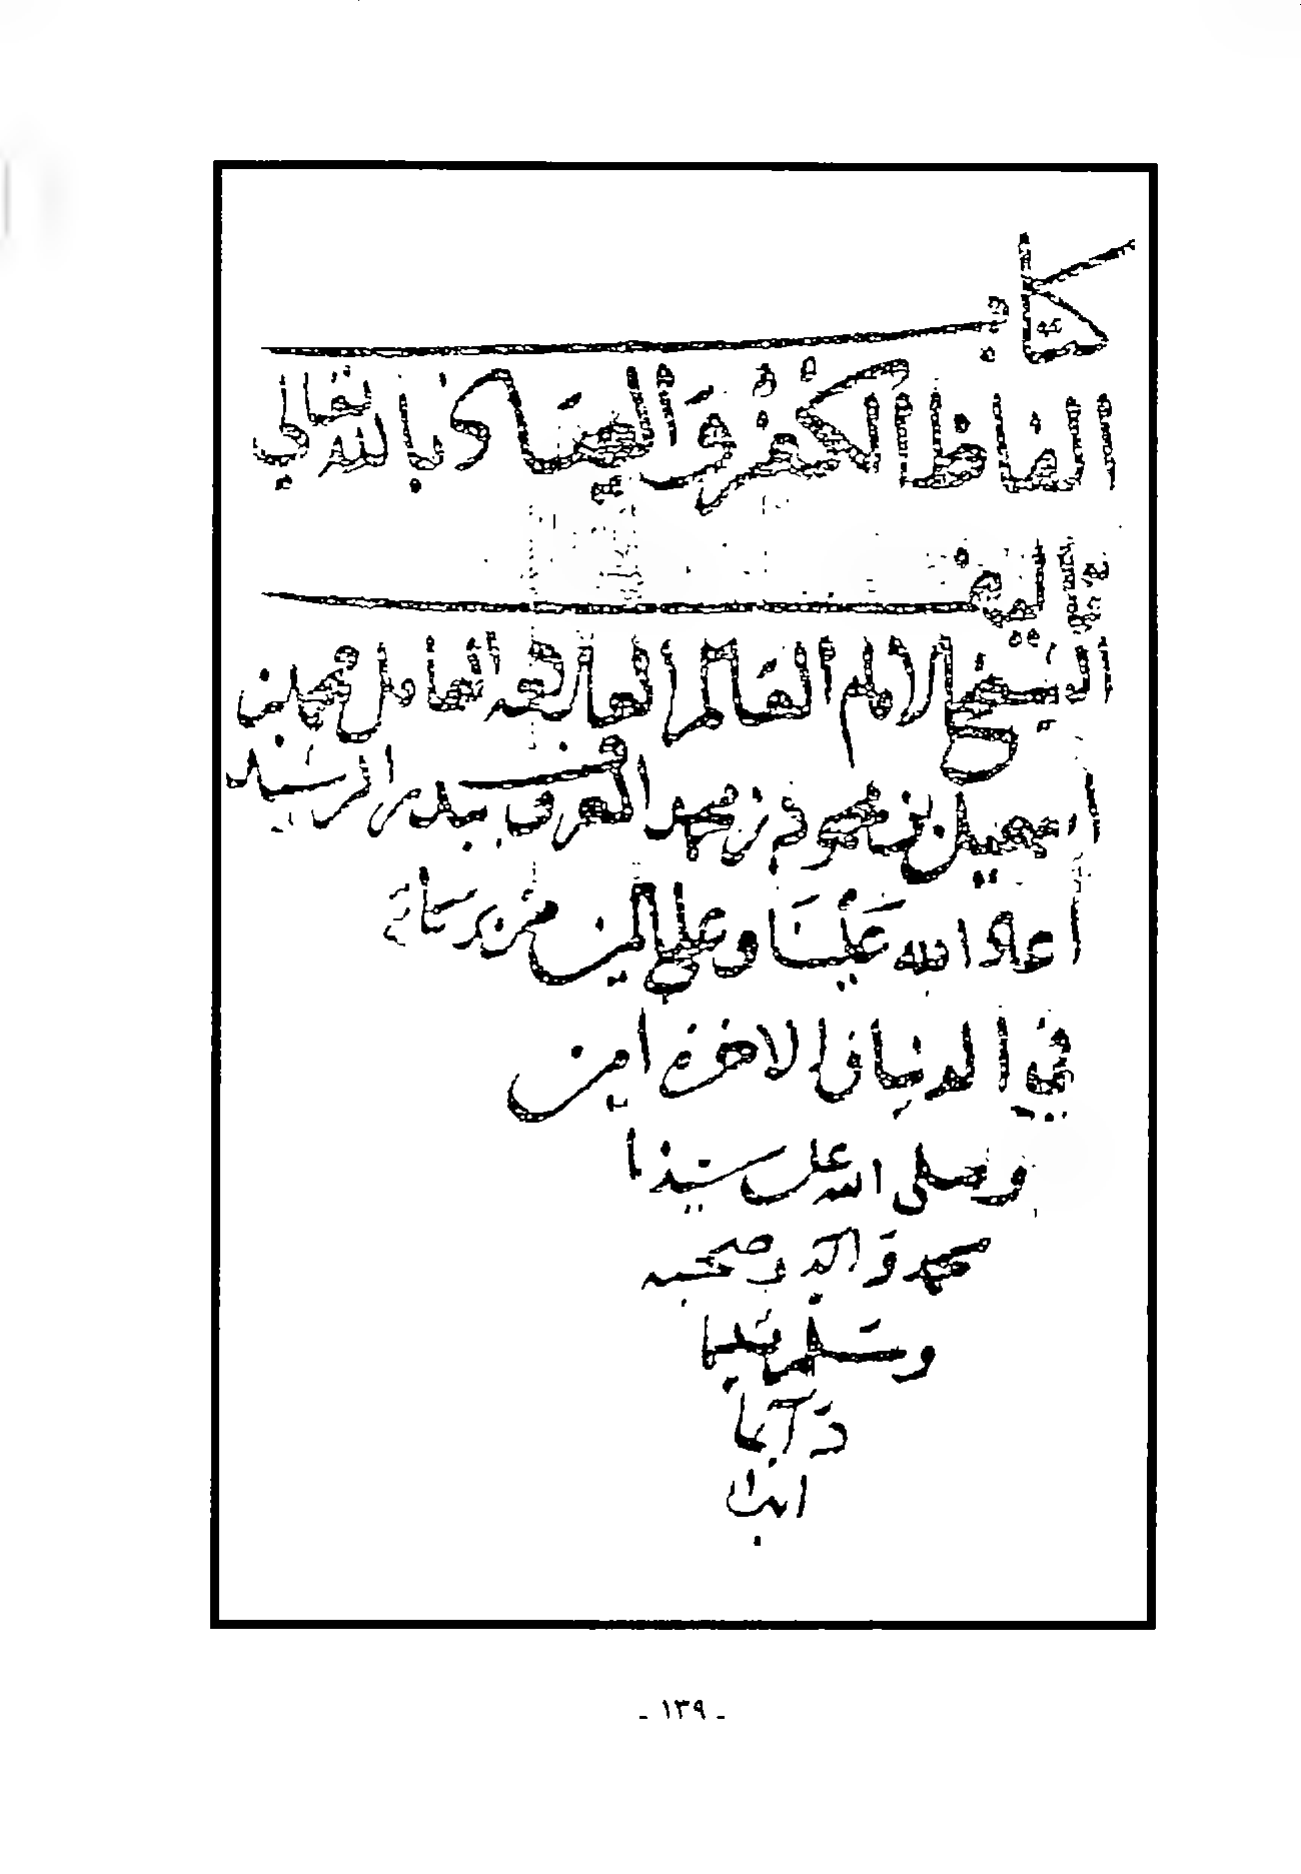 كتاب
الفاظ الكفر والعياذ بالله تعالى
تاليف
الشيخ الامام العالم العلامة العامل محمد بن
اسمعيل بن محمود بن محمد المعروف ببدر الرشيد
اعاد الله علينا وعلى المسلمين من بركاته
في الدنيا والاخرة امين
وصلى الله على سيدنا
محمد وآله وصحبه
وسلم تسليما
دآئما
ابدا
- ١٣٩ -